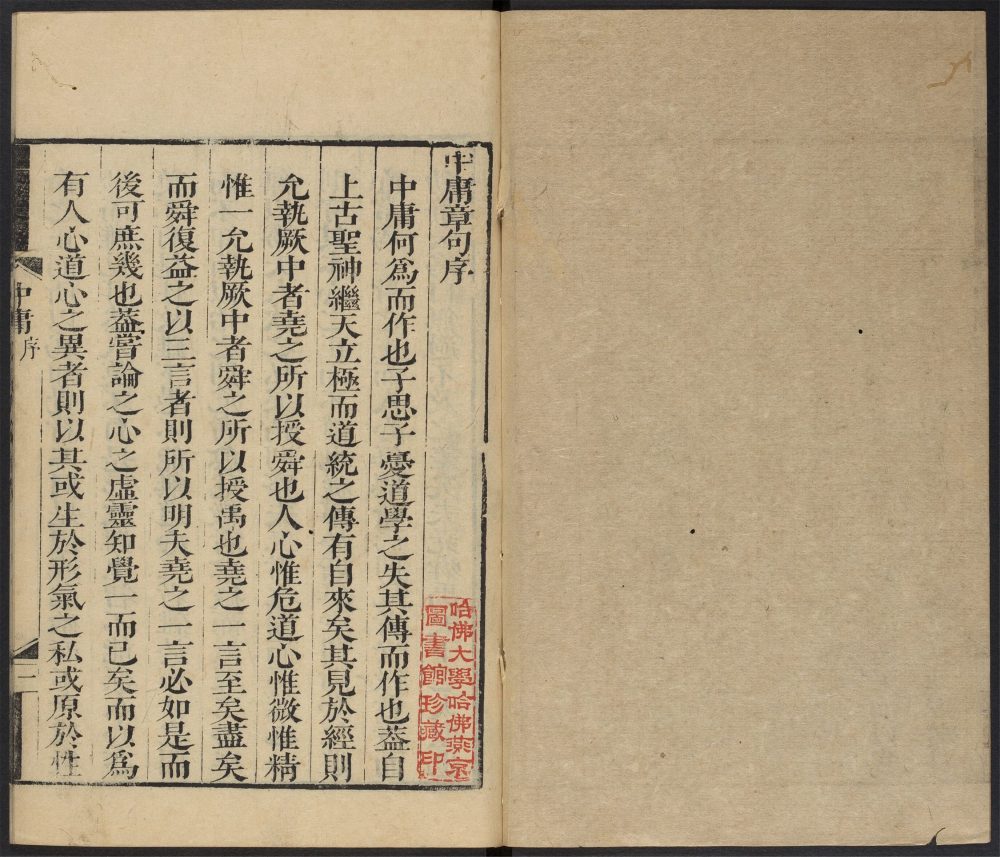 中庸章句序
中庸何爲而作也子思子憂道學之失其傳而作也葢自
上古聖神繼天立極而道統之傳有自來矣其見於經則
允執厥中者堯之所以授舜也人心惟危道心惟微惟精
惟一允執厥中者舜之所以授禹也堯之一言至矣盡矣
而舜復益之以三言者則所以明夫堯之一言必如是而
後可庶幾也葢嘗論之心之虛靈知覺一而已矣而以爲
有人心道心之異者則以其或生於形氣之私或原於性
中庸序
一
哈佛大學哈佛燕京
圖書館珍藏印